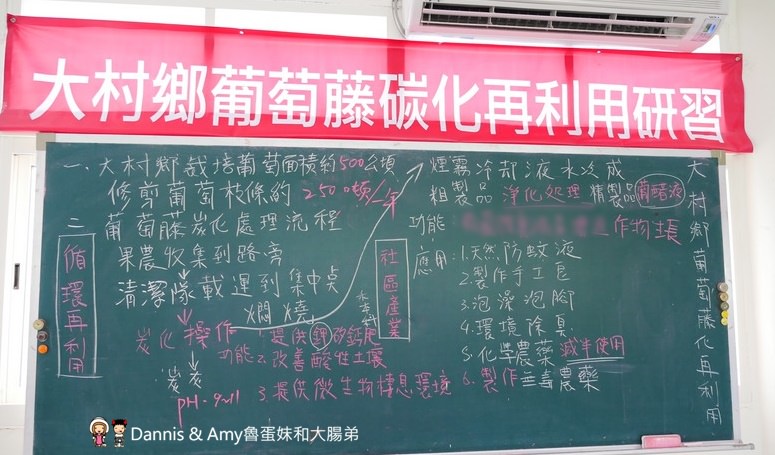 大村鄉葡萄藤碳化再利用研習
一、大村鄉栽培葡萄面積約500公頃
修剪葡萄枝條約2500噸/年
二、葡萄藤炭化處理流程
果農收集到路旁
清潔隊載運到集中點
燜燒
炭化操作
炭灰
pH-9~11
功能
1.提供鉀矽鈣肥
2.改善酸性土壤
3.提供微生物棲息環境
循環再利用
社區產業
煙霧冷却液水次成
粗製品 淨化処理 精製品葡醋液
功能:
作物生長
應用:1.天然防蚊液
2.製作手工皂
3.泡澡泡腳
4.環境除臭
5.化學農藥減半使用
6.製作無毒農藥
大村鄉葡萄藤化再利用
Dannis & Amy魯蛋妹和大腸弟